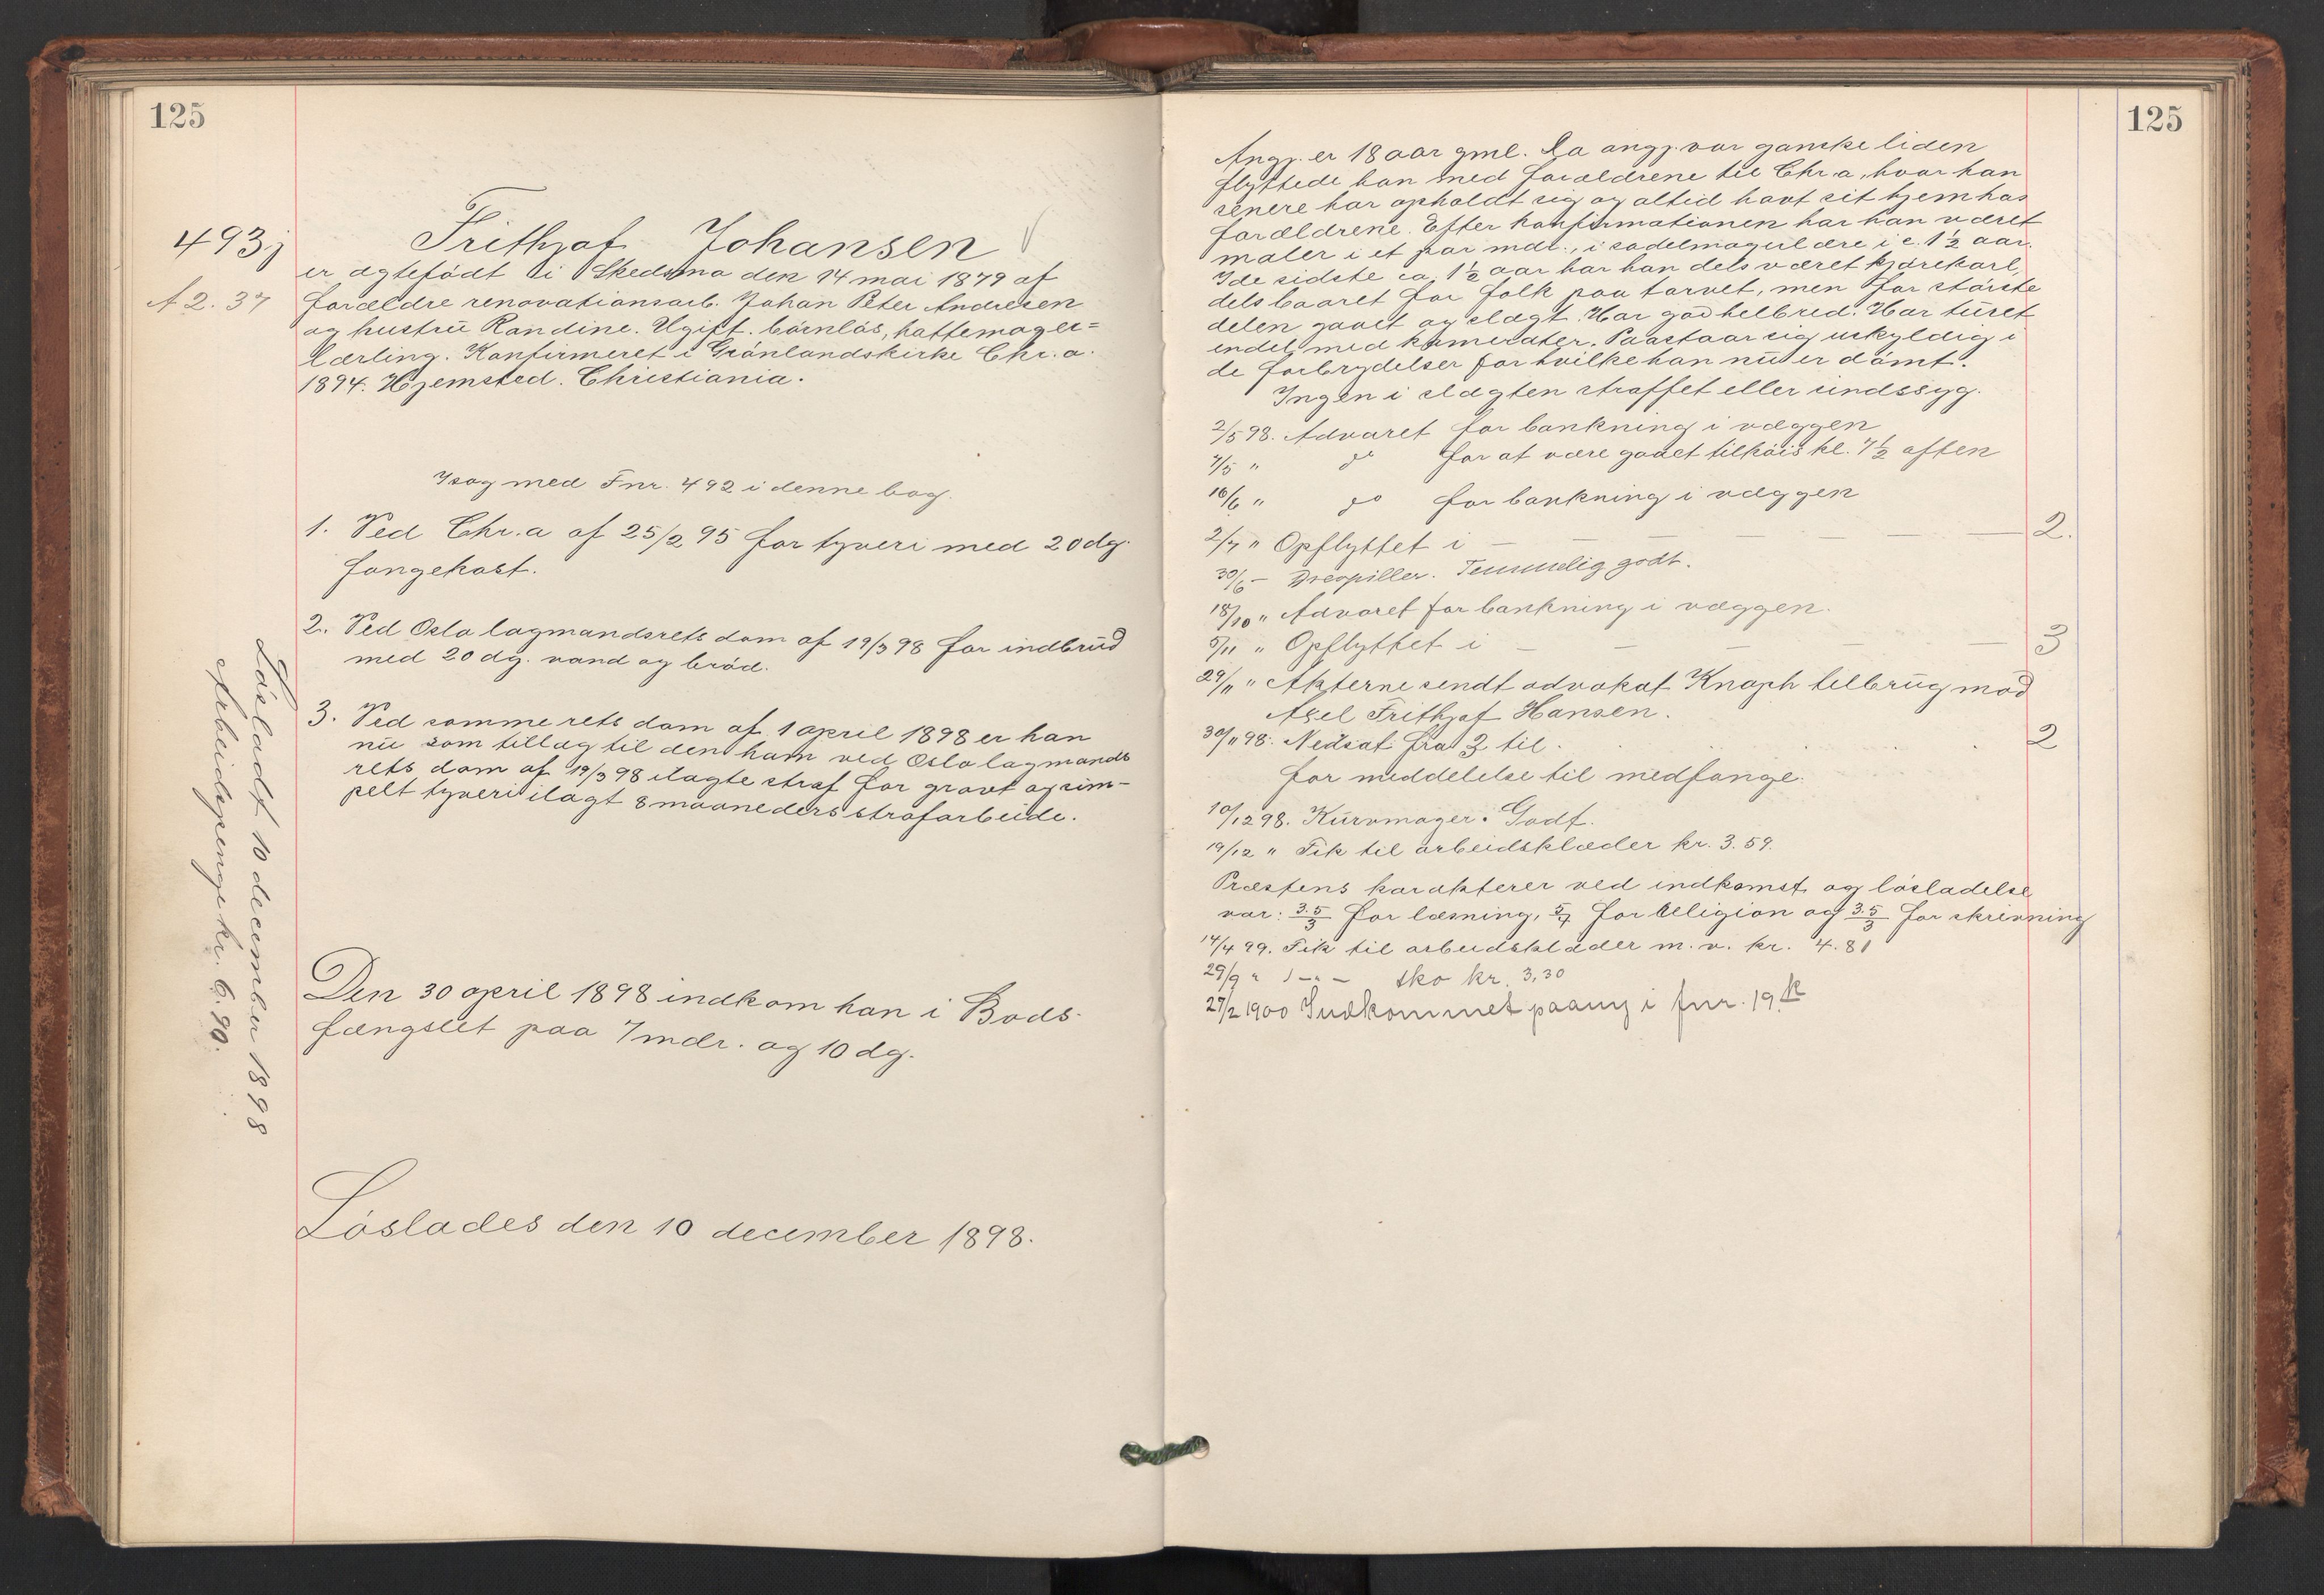 125
493j
A 2. 37
Frithjof Johansen
er ægtefödt i Skedsmo den 14 mai 1879 af
forældre renovationsarb. Johan Peter Andresen
og hustru Randine. Ugift. börnlös, hattemager=
lærling. Konfirmeret i Grönlandskirke Chr.a.
1894. Hjemsted. Christiania.
I sag med Fnr. 492 i denne bog.
1. Ved Chr.a af 25/2 95 for tyveri med 20 dg.
fangekost.
2. Ved Oslo lagmandsrets dom af 19/3 98 for indbrud
med 20 dg. vand og bröd.
3. Ved samme rets dom af 1 april 1898 er han
nu som tillæg til den ham ved Oslo lagmands
rets dom af 19/3 98 ilagte straf for grovt og sim-
pelt tyveri ilagt 8 maaneders strafarbeide.
Den 30 april 1898 indkom han i Bods-
fængslet paa 7 mdr. og 10 dg.
Löslades den 10 december 1898.
Lösladt 10 december 1898
Arbeidspenge kr. 6.90.
125
Angj. er 18 aar gml. Da angj. var ganske liden
flyttede han med forældrene til Chr.a, hvor han
senere har opholdt sig og altid havt sit hjem hos
forældrene. Efter konfirmationen har han været
maler i et par mdr., i sadelmagerlære i c. 1½ aar.
I de sidste ca. 1½ aar har han dels været kjörekarl,
dels baaret for folk paa torvet, men for störste
delen gaaet og slægt. Har god helbred. Har turet
endel med kamerater. Paastaar sig uskyldig i
de forbrydelser for hvilke han nu er dömt.
Ingen i slægten straffet eller sindssyg.
2/5 98. Advaret for bankning i væggen
7/5 " do for at være gaaet tilköis kl. 7½ aften
16/6 " do for bankning i væggen
2/7 " Opflyttet i — — — — — 2.
30/6 - Temmelig godt.
18/10 " Advaret for bankning i væggen.
5/11 " Opflyttet i — — — — — 3
29/11 " Akterne sendt advokat Knoph til brug mod
Axel Frithjof Hansen.
30/11 98. Nedsat fra 3 til . . . . 2
for meddelelse til medfange.
10/12 98. Kurvmager. Godt.
19/12 " Fik til arbeidsklæder kr. 3.59.
Præstens karakterer ved indkomst og lösladelse
var: 3.5/3 for læsning, 5/4 for religion og 3.5/3 for skrivning
14/4 99. Fik til arbeidsklæder m. v. kr. 4.81
29/9 " — " — sko kr. 3,30
27/2 1900 Indkommet paany i fnr. 19k